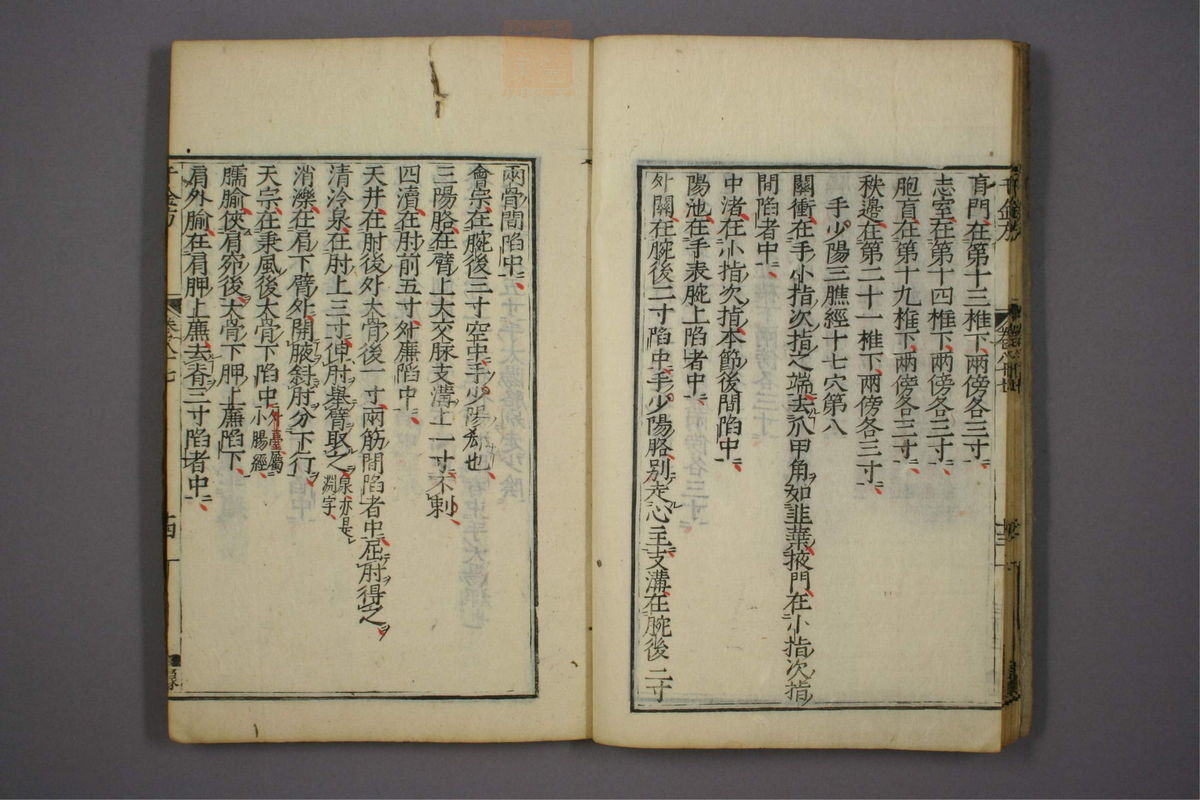 肓門在第十三椎下兩傍各三寸
志室在第十四椎下兩傍各三寸
胞肓在第十九椎下兩傍各三寸
秩邊在第二十一椎下兩傍各三寸
手少陽三膲經十七穴第八
關衝在手小指次指之端去爪甲角如韭葉掖門在小指次指
間陷者中
中渚在小指次指本節後間陷中
陽池在手表腕上陷者中
外關在腕後二寸陷中手少陽胳别走心主支溝在腕後三寸
兩骨間陷中
會宗在腕後三寸空中手少陽郄也
三陽胳在臂上大交脉支溝上一寸不刺
四瀆在肘前五寸外廉陷中
天井在肘後外大骨後一寸兩筋間陷者中屈肘得之
清冷泉在肘上三寸伸肘舉臂取之泉亦是淵字
消濼在肩下臂外開腋斜肘分下行
天宗在秉風後大骨下陷中外臺屬小腸經
臑腧俠肩窌後大骨下胛上廉陷下
肩外腧在肩胛上廉去脊三寸陷者中